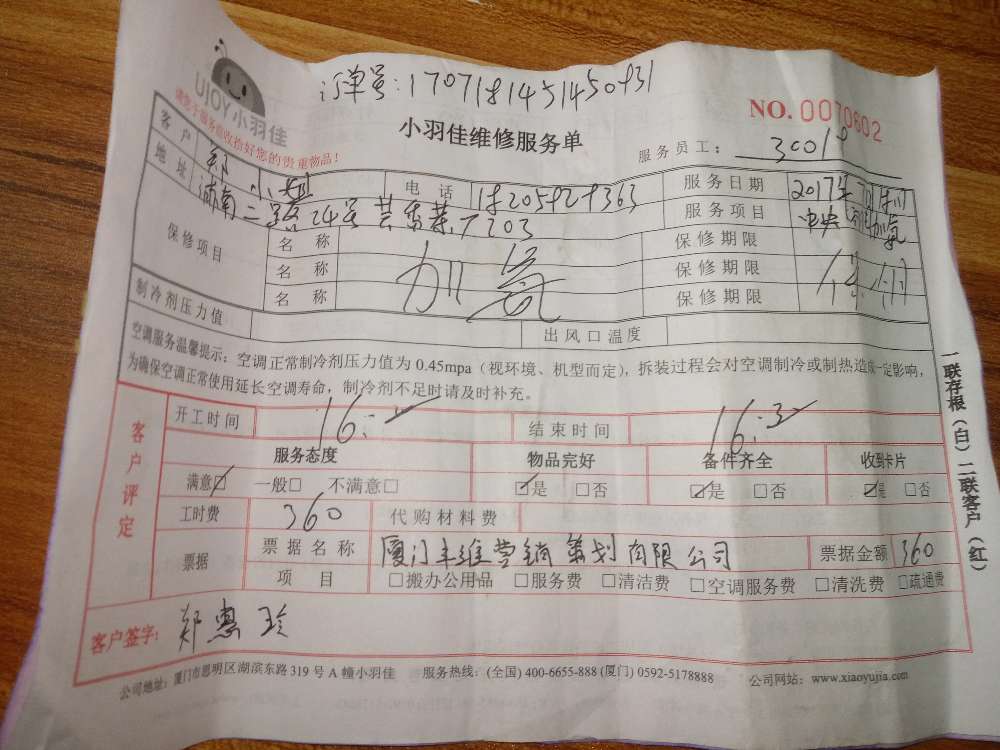 订单号:
UIOY小羽佳
请您于服务前收拾好您的贵重物品!
NO. 0070602
小羽佳维修服务单
服务员工:
客户 郑小姐 电话 服务日期 2017年
地址 湖南二路24号 203 服务项目 中央空调加氟
保修项目 名称 加氟 保修期限
名称 保修期限
名称 保修期限
制冷剂压力值 出风口温度
空调服务温馨提示:空调正常制冷剂压力值为 0.45mpa(视环境、机型而定),拆装过程会对空调制冷或制热造成一定影响,
为确保空调正常使用延长空调寿命,制冷剂不足时请及时补充。
客户评定
开工时间 16: 结束时间 16:3
服务态度 物品完好 备件齐全 收到卡片
满意☑ 一般□ 不满意□ ☑是 □否 ☑是 □否 ☑是 □否
工时费 360 代购材料费
票据 票据名称 厦门丰维营销策划有限公司 票据金额 360
项目 □搬办公用品 □服务费 □清洁费 □空调服务费 □清洗费 □疏通费
客户签字: 郑惠玲
公司地址:厦门市思明区湖滨东路 319 号 A 幢小羽佳 服务热线:(全国) 400-6655-888 (厦门) 0592-5178888 公司网站:www.xiaoyujia.com
一联存根(白)二联客户(红)